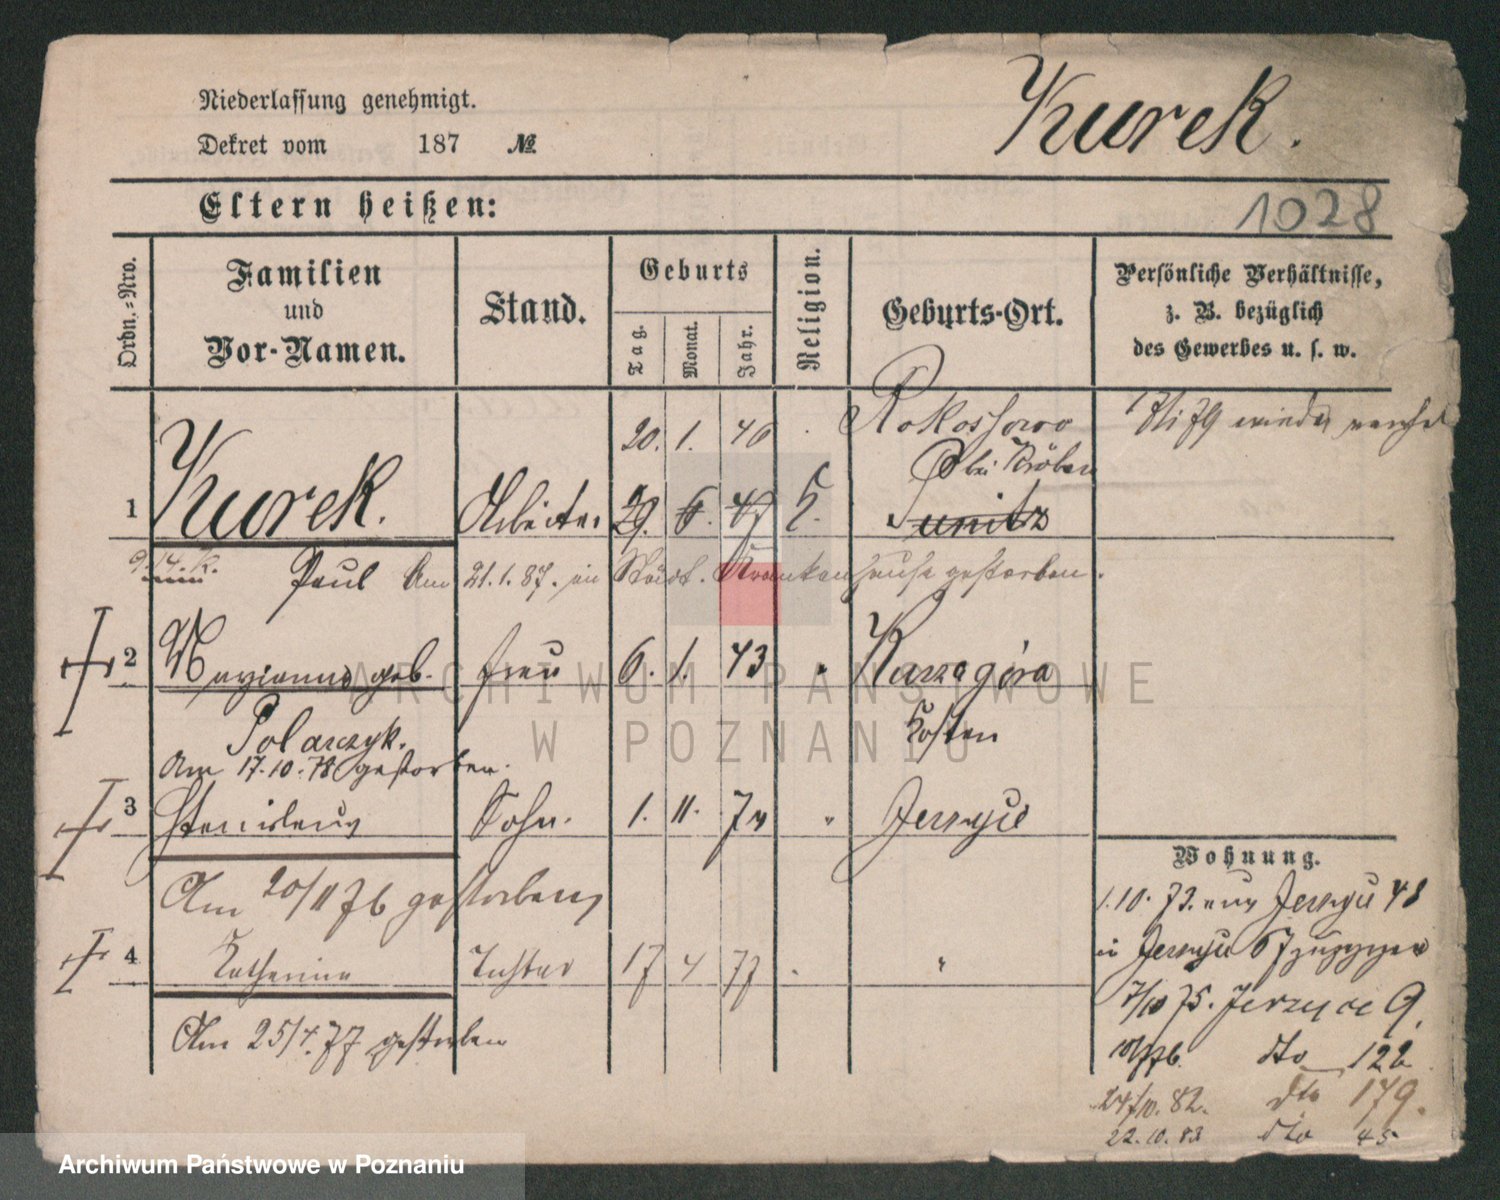 Niederlassung genehmigt.
Dekret vom 187 №
Kurek.
1028
Eltern heißen:
Ordn.=Nro.
Familien
und
Vor-Namen.
Stand.
Geburts
Tag.
Monat.
Jahr.
Religion.
Geburts-Ort.
Persönliche Verhältnisse,
z. B. bezüglich
des Gewerbes u. s. w.
20. 1. 46 Rokossowo
bei Kröben
wieder
1 Kurek. Arbeiter 29. 6. 47 K. Punitz
Paul Am 21.1.87. im Städt. Krankenhause gestorben.
2 Maryanna geb. Frau 6. 1. 43 " Kurzagóra
Polarczyk. Kosten
Am 17.10.78 gestorben.
3 Stanislaus Sohn. 1. 11. " Jersyce
Am 20/11 76 gestorben
4 Katharina Tochter 17 4 77 "
Am 25/4.77 gestorben
Wohnung.
1.10.73. aus Jersyce 48
in Jersyce 67
7/10 75. Jerzyce 9.
dto 122
24/10.82. dto 179.
22.10.83 dto 45
ARCHIWUM PAŃSTWOWE
W POZNANIU
Archiwum Państwowe w Poznaniu